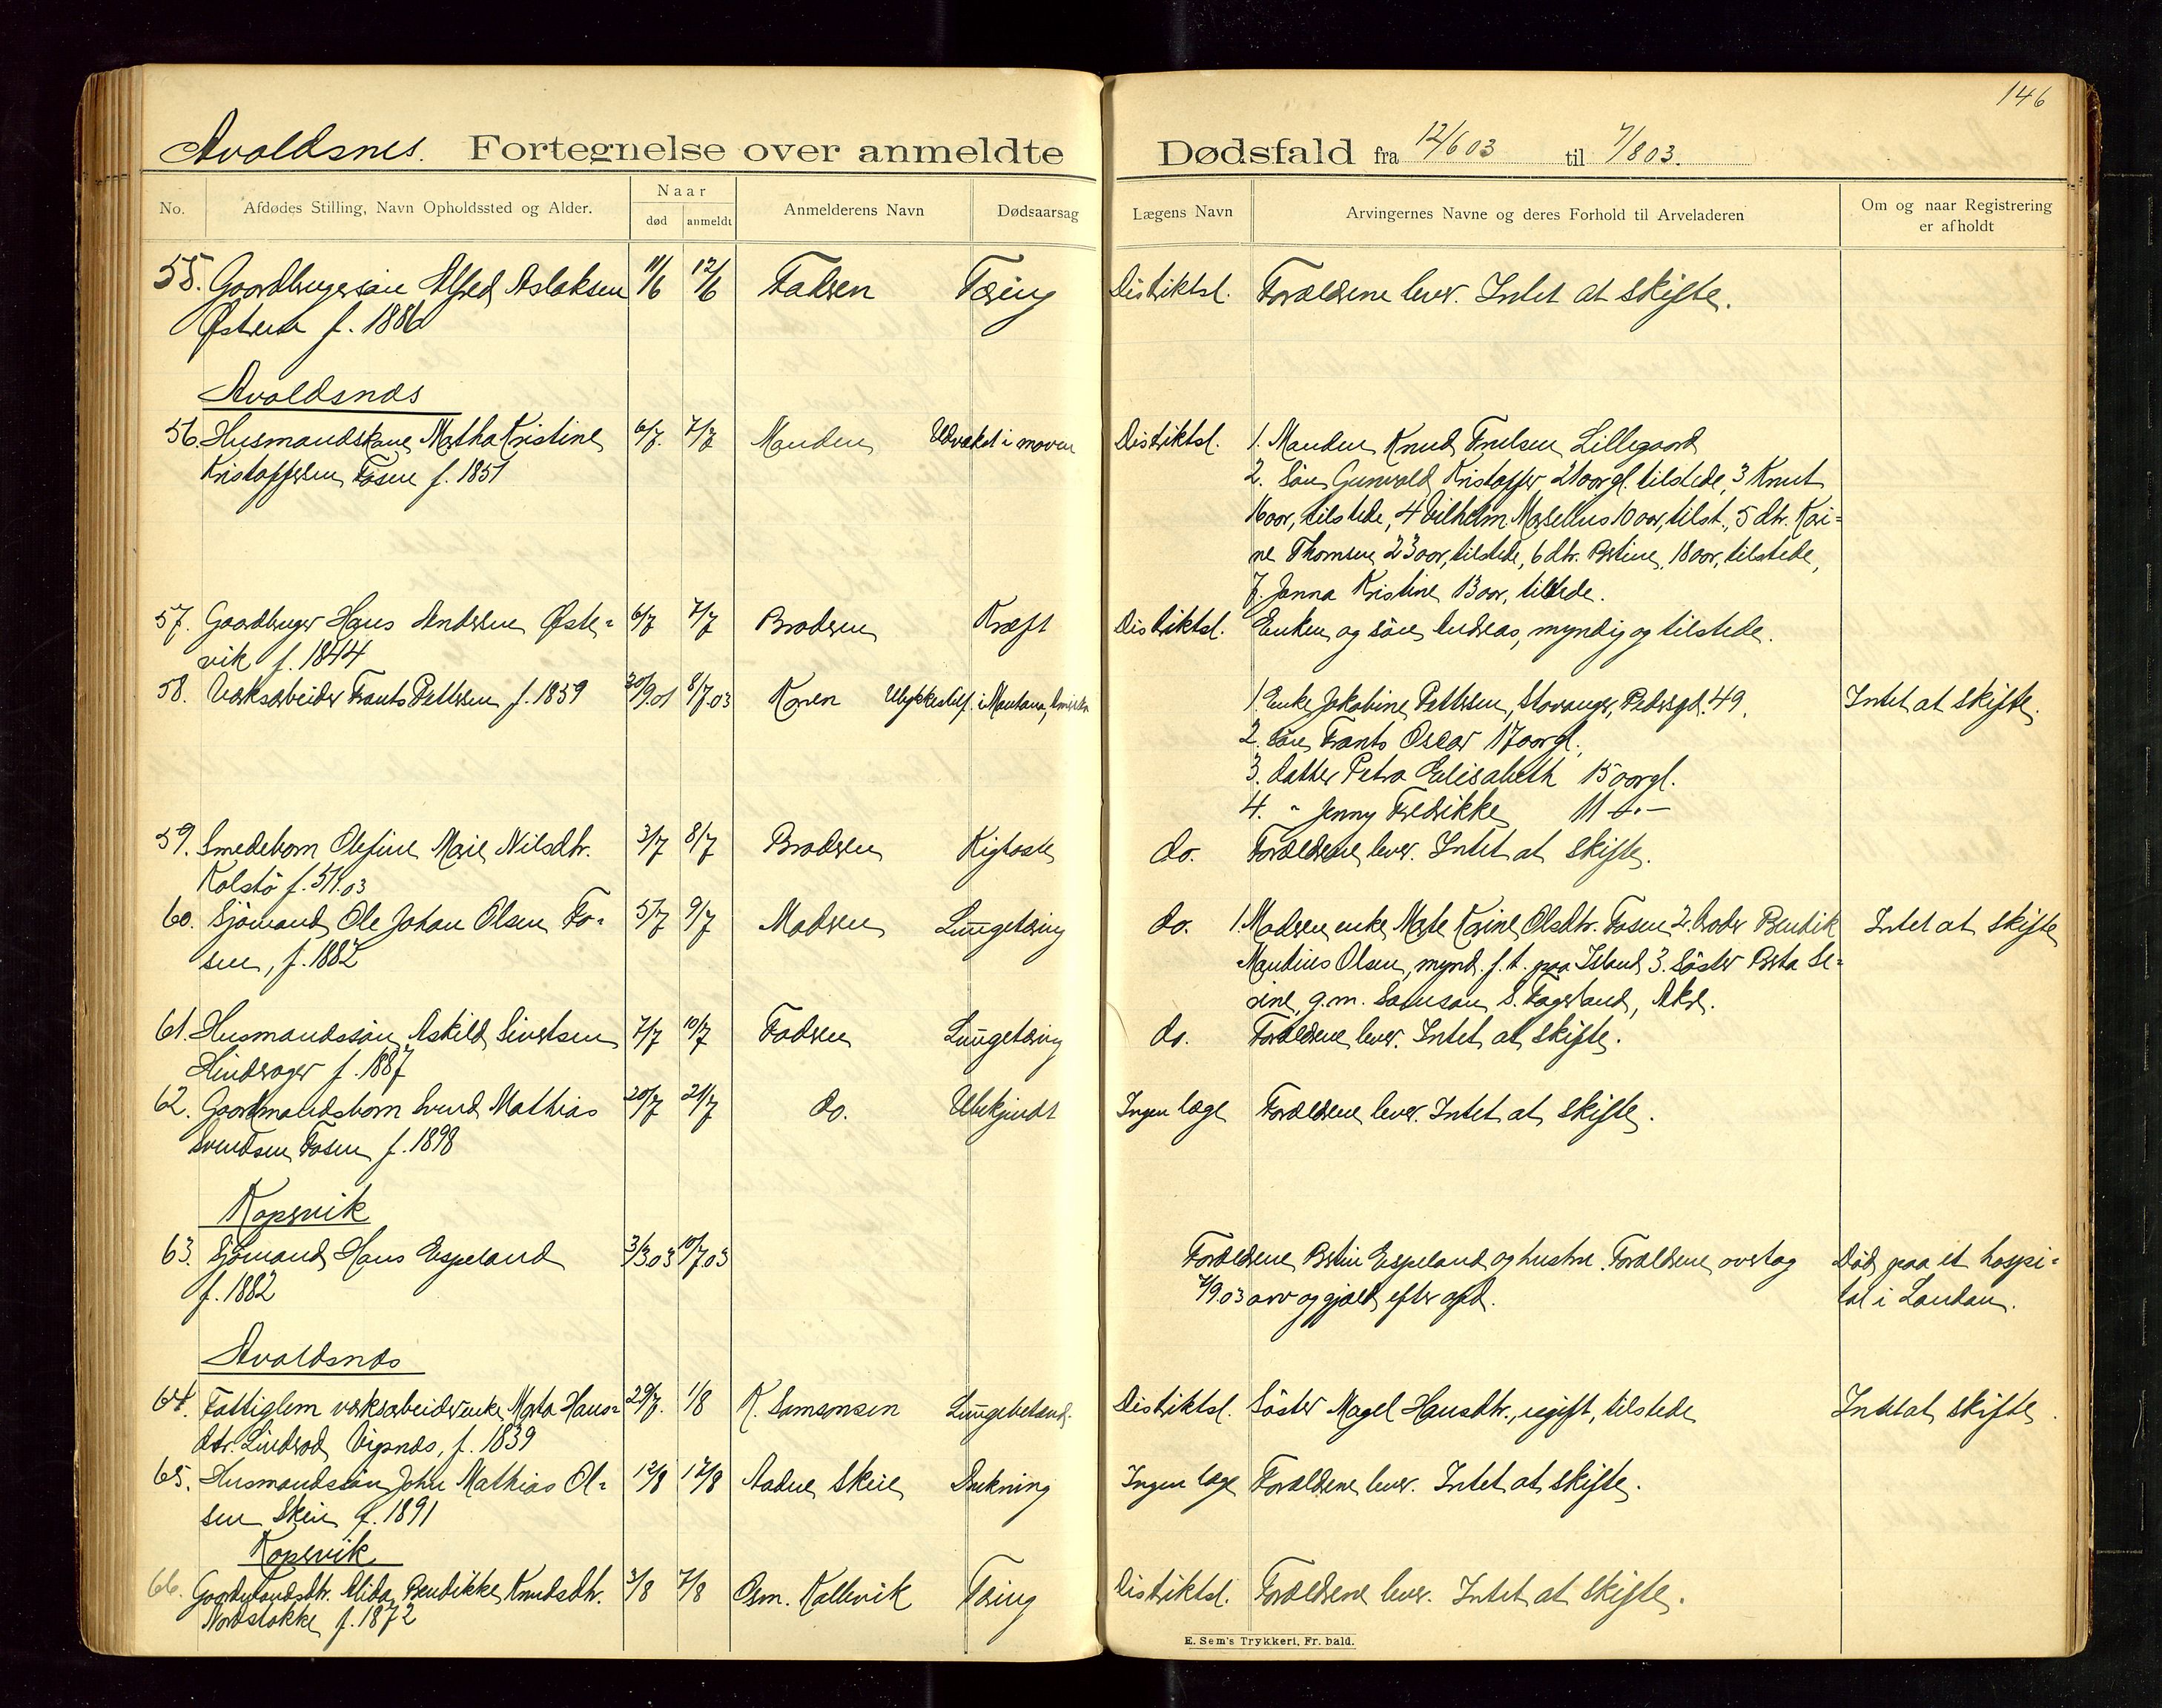 146
Avaldsnes. Fortegnelse over anmeldte Dødsfald fra 12/6 03 til 7/8 03.
No. Afdødes Stilling, Navn Opholdssted og Alder. Naar død anmeldt Anmelderens Navn Dødsaarsag Lægens Navn Arvingernes Navne og deres Forhold til Arveladeren Om og naar Registrering er afholdt
55. Gaardbrugersøn Alfred Aslaksen 11/6 12/6 Faderen Tæring Distriktsl. Forældrene lever. Intet at skifte.
f. 1886
Avaldsnæs
56. Husmandskone Martha Kristine 6/7. 7/7 Manden Udvækst i maven Distriktsl. 1. Manden Knud Lillegaard
Kristoffersen Fosen f. 1851 2. Søn Gunvald Kristoffer 21 aar gl. tilstede, 3 Knut
16 aar, tilstede, 4 Vilhelm Marselius 10 aar, tilst., 5 dtr. Kari=
ne Thomsen, 23 aar, tilstede, 6 dtr. Bertine, 18 aar, tilstede,
7. Janna Kristine 13 aar, tilstede.
57. Gaardbruger Hans Andersen Øste= 6/7 7/7 Broderen Kræft Distriktsl. Enken og søn Andreas, myndig og tilstede.
vik f. 1844
58. Verksarbeider Frants Pettersen f. 1859 20/9.01 8/7.03 Konen Ulykkestilf. i Montana, Amerika 1. Enke Jakobine Pettersen, Stavanger, Pedersgd. 49. Intet at skifte.
2. Søn Frants Oscar 17 aar gl.,
3. datter Petra Elisabeth 15 aar gl.
4. " Jenny Fredrikke 11 -"-
59. Smedebarn Olefine Marie Nilsdtr. 3/7 8/7 Broderen Kighoste do. Forældrene lever. Intet at skifte.
Kolstø f. 5/1.03
60. Sjømand Ole Johan Olsen Fo= 5/7 9/7 Moderen Lungetæring do. 1. Moderen enke Marte Karine Olsdtr. Fosen 2. broder Bendik Intet at skifte
sen, f. 1882 Mandius Olsen, mynd. f. t. paa Island 3. Søster Berta Se=
rine, g. m. Samson S. Fagerland, Akre.
61. Husmandssøn Askild Sivertsen 7/7 10/7 Faderen Lungetæring do. Forældrene lever. Intet at skifte.
Hinderager f. 1887
62. Gaardmandsbarn Svend Mathias 20/7 21/7 do. Ubekjendt Ingen læge Forældrene lever. Intet at skifte.
Svendsen Fosen f. 1898
Kopervik
63. Sjømand Hans Espeland 3/3.03 10/7.03 Forældrene Bertin Espeland og hustru. Forældrene overtog Død paa et hospi=
f. 1882 7/9.03 arv og gjæld efter afd. tal i London.
Avaldsnæs
64. Fattiglem verksarbeiderenke Marta Hans= 29/7. 1/8 K. Samsonsen Lungebetænd. Distriktsl. Søster Magel Hansdtr., ugift, tilstede Intet at skifte.
dtr. Linderød Vigsnæs, f. 1839
65. Husmandssøn John Mathias Ol= 12/8 12/8 Aadne Skeie Drukning Ingen læge Forældrene lever. Intet at skifte.
sen Skeie f. 1891
Kopervik
66. Gaardmandsdtr. Alida Bendikke Knudsdtr. 3/8 7/8 Osm. Kallevik Tæring Distriktsl. Forældrene lever. Intet at skifte.
Nordstokke f. 1872
E. Sem's Trykkeri, Fr. hald.